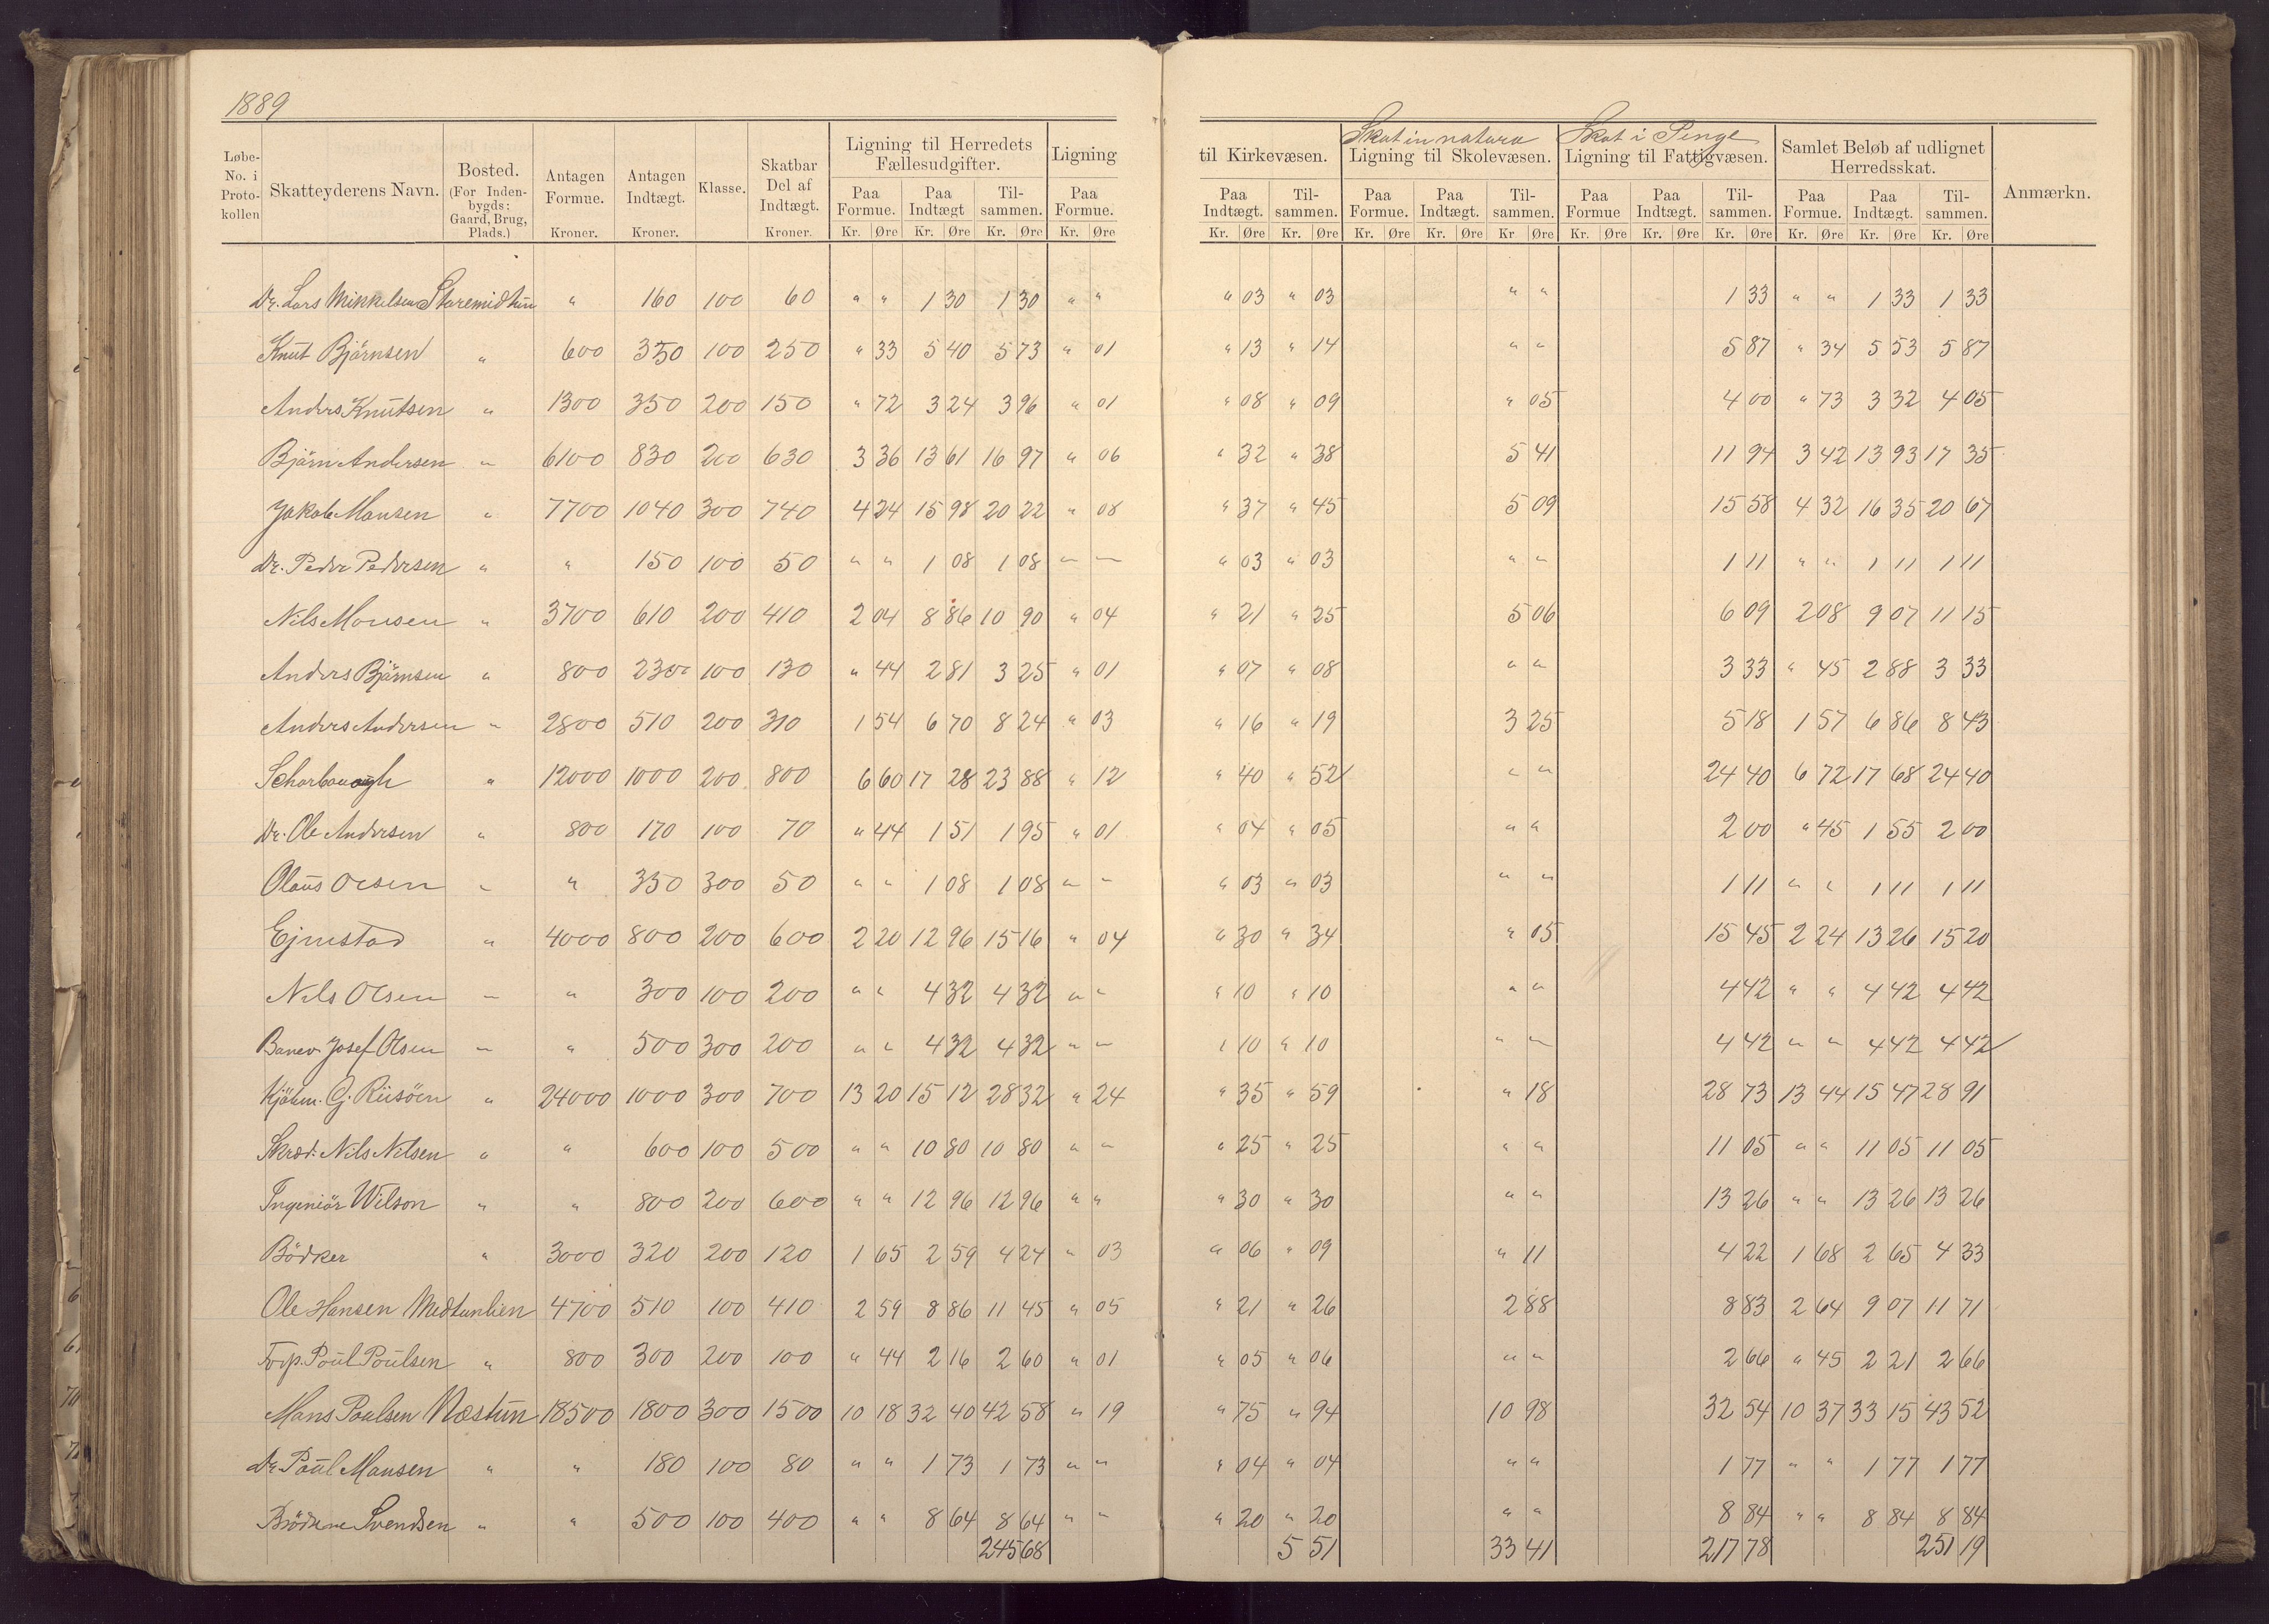 1889
Løbe-No. i Proto-kollen | Skatteyderens Navn. | Bosted. (For Inden-bygds: Gaard, Brug, Plads.) | Antagen Formue. Kroner. | Antagen Indtægt. Kroner. | Klasse. | Skatbar Del af Indtægt. Kroner. | Ligning til Herredets Fællesudgifter. Paa Formue. Kr. Øre | Paa Indtægt Kr. Øre | Til-sammen. Kr. Øre | Ligning Paa Formue. Kr. Øre | til Kirkevæsen. Paa Indtægt. Kr. Øre | Til-sammen. Kr. Øre | Skat in natura Ligning til Skolevæsen. Paa Formue. Kr. Øre | Paa Indtægt. Kr. Øre | Til-sammen. Kr Øre | Skat i Penge Ligning til Fattigvæsen. Paa Formue Kr. Øre | Paa Indtægt. Kr. Øre | Til-sammen. Kr. Øre | Samlet Beløb af udlignet Herredsskat. Paa Formue. Kr. Øre | Paa Indtægt. Kr. Øre | Til-sammen. Kr. Øre | Anmærkn.
Dr. Lars Mikkelsen Storemidtun " 160 100 60 " " 1 30 1 30 " " " 03 " 03 " " 1 33 " " 1 33 1 33
Knut Björnsen " 600 350 100 250 " 33 5 40 5 73 " 01 " 13 " 14 " " 5 87 " 34 5 53 5 87
Anders Knutsen " 1300 350 200 150 " 72 3 24 3 96 " 01 " 08 " 09 " 05 4 00 " 73 3 32 4 05
Björn Andersen " 6100 830 200 630 3 36 13 61 16 97 " 06 " 32 " 38 5 41 11 94 3 42 13 93 17 35
Jakob Monsen " 7700 1040 300 740 4 24 15 98 20 22 " 08 " 37 " 45 5 09 15 58 4 32 16 35 20 67
Dr. Peder Pedersen " " 150 100 50 " " 1 08 1 08 " " " 03 " 03 " " 1 11 " " 1 11 1 11
Nils Monsen " 3700 610 200 410 2 04 8 86 10 90 " 04 " 21 " 25 5 06 6 09 2 08 9 07 11 15
Anders Björnsen " 800 230 100 130 " 44 2 81 3 25 " 01 " 07 " 08 " " 3 33 " 45 2 88 3 33
Anders Andersen " 2800 510 200 310 1 54 6 70 8 24 " 03 " 16 " 19 3 25 5 18 1 57 6 86 8 43
" 12000 1000 200 800 6 60 17 28 23 88 " 12 " 40 " 52 " " 24 40 6 72 17 68 24 40
Dr. Ole Andersen " 800 170 100 70 " 44 1 51 1 95 " 01 " 04 " 05 " " 2 00 " 45 1 55 2 00
Olaus Olsen " " 350 300 50 " " 1 08 1 08 " " " 03 " 03 " " 1 11 " " 1 11 1 11
Ejmstad " 4000 800 200 600 2 20 12 96 15 16 " 04 " 30 " 34 " 05 15 45 2 24 13 26 15 20
Nils Olsen " " 300 100 200 " " 4 32 4 32 " " " 10 " 10 " " 4 42 " " 4 42 4 42
Banev. Josef Olsen " " 500 300 200 " " 4 32 4 32 " " " 10 " 10 " " 4 42 " " 4 42 4 42
Kjöbm. G. Riisöen " 24000 1000 300 700 13 20 15 12 28 32 " 24 " 35 " 59 " 18 28 73 13 44 15 47 28 91
Skræd. Nils Nilsen " " 600 100 500 " " 10 80 10 80 " " " 25 " 25 " " 11 05 " " 11 05 11 05
Ingeniör Wilson " " 800 200 600 " " 12 96 12 96 " " " 30 " 30 " " 13 26 " " 13 26 13 26
Bödker " 3000 320 200 120 1 65 2 59 4 24 " 03 " 06 " 09 " 11 4 22 1 68 2 65 4 33
Ole Hansen Midtunlien 4700 510 100 410 2 59 8 86 11 45 " 05 " 21 " 26 2 88 8 83 2 64 9 07 11 71
Forp. Poul Poulsen " 800 300 200 100 " 44 2 16 2 60 " 01 " 05 " 06 " " 2 66 " 45 2 21 2 66
Mons Poulsen Nestun 18500 1800 300 1500 10 18 32 40 42 58 " 19 " 75 " 94 10 98 32 54 10 37 33 15 43 52
Dr. Poul Monsen " " 180 100 80 " " 1 73 1 73 " " " 04 " 04 " " 1 77 " " 1 77 1 77
Brödrene Svendsen " " 500 100 400 " " 8 64 8 64 " " " 20 " 20 " " 8 84 " " 8 84 8 84
245 68 5 51 33 41 217 78 251 19